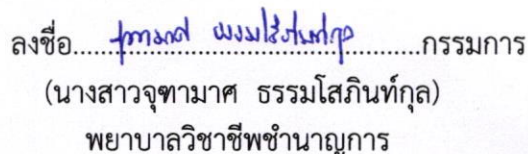 ลงชื่อ....จุฑามาศ ธรรมโสภินท์กุล....กรรมการ
(นางสาวจุฑามาศ ธรรมโสภินท์กุล)
พยาบาลวิชาชีพชำนาญการ